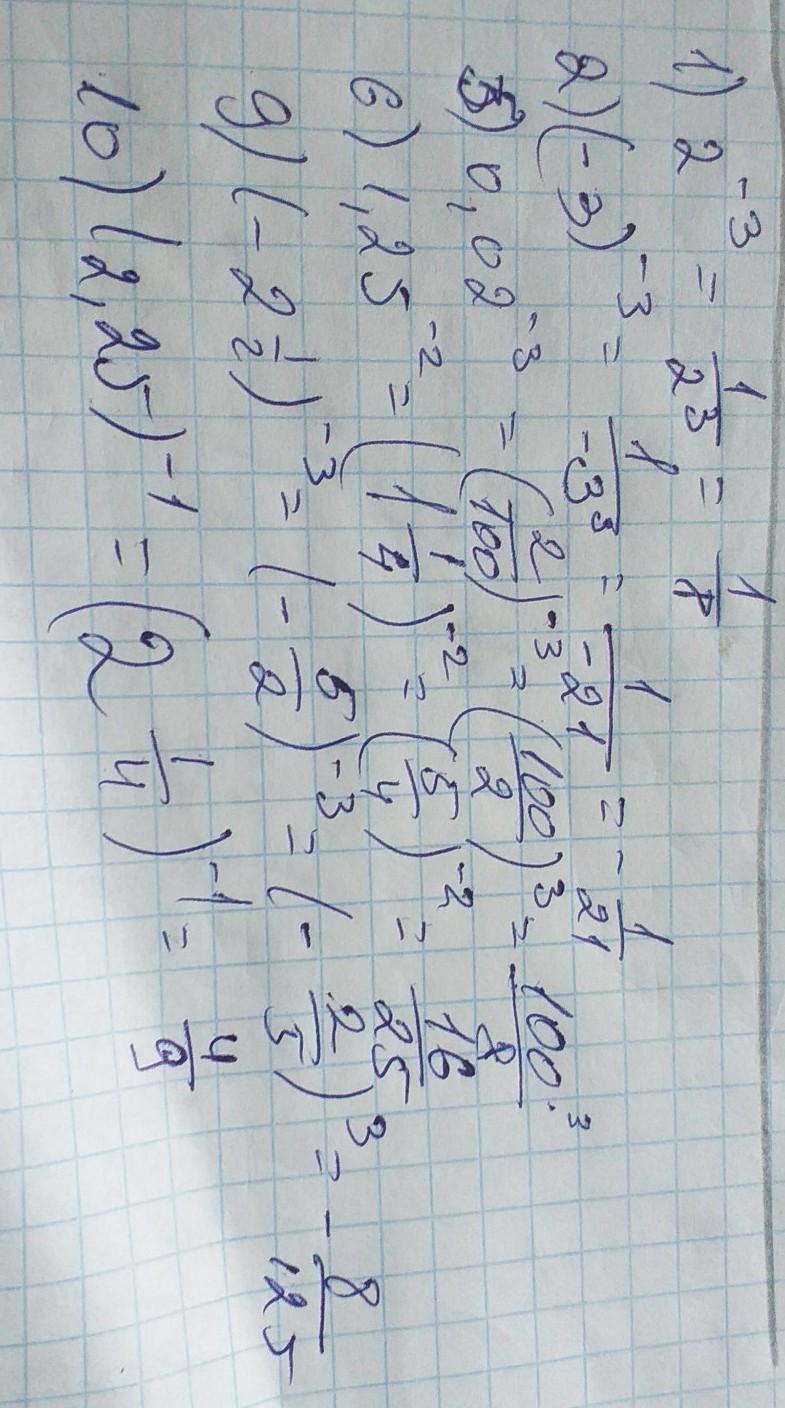 1) 2^-3 = 1/2^3 = 1/8
2) (-3)^-3 = 1/-3^3 = 1/-21 = -1/21
5) 0,02^-3 = (2/100)^-3 = (100/2)^3 = 100^3/8
6) 1,25^-2 = (1 1/4)^-2 = (5/4)^-2 = 16/25
9) (-2 1/2)^-3 = (-5/2)^-3 = (-2/5)^3 = -8/125
10) (2,25)^-1 = (2 1/4)^-1 = 4/9